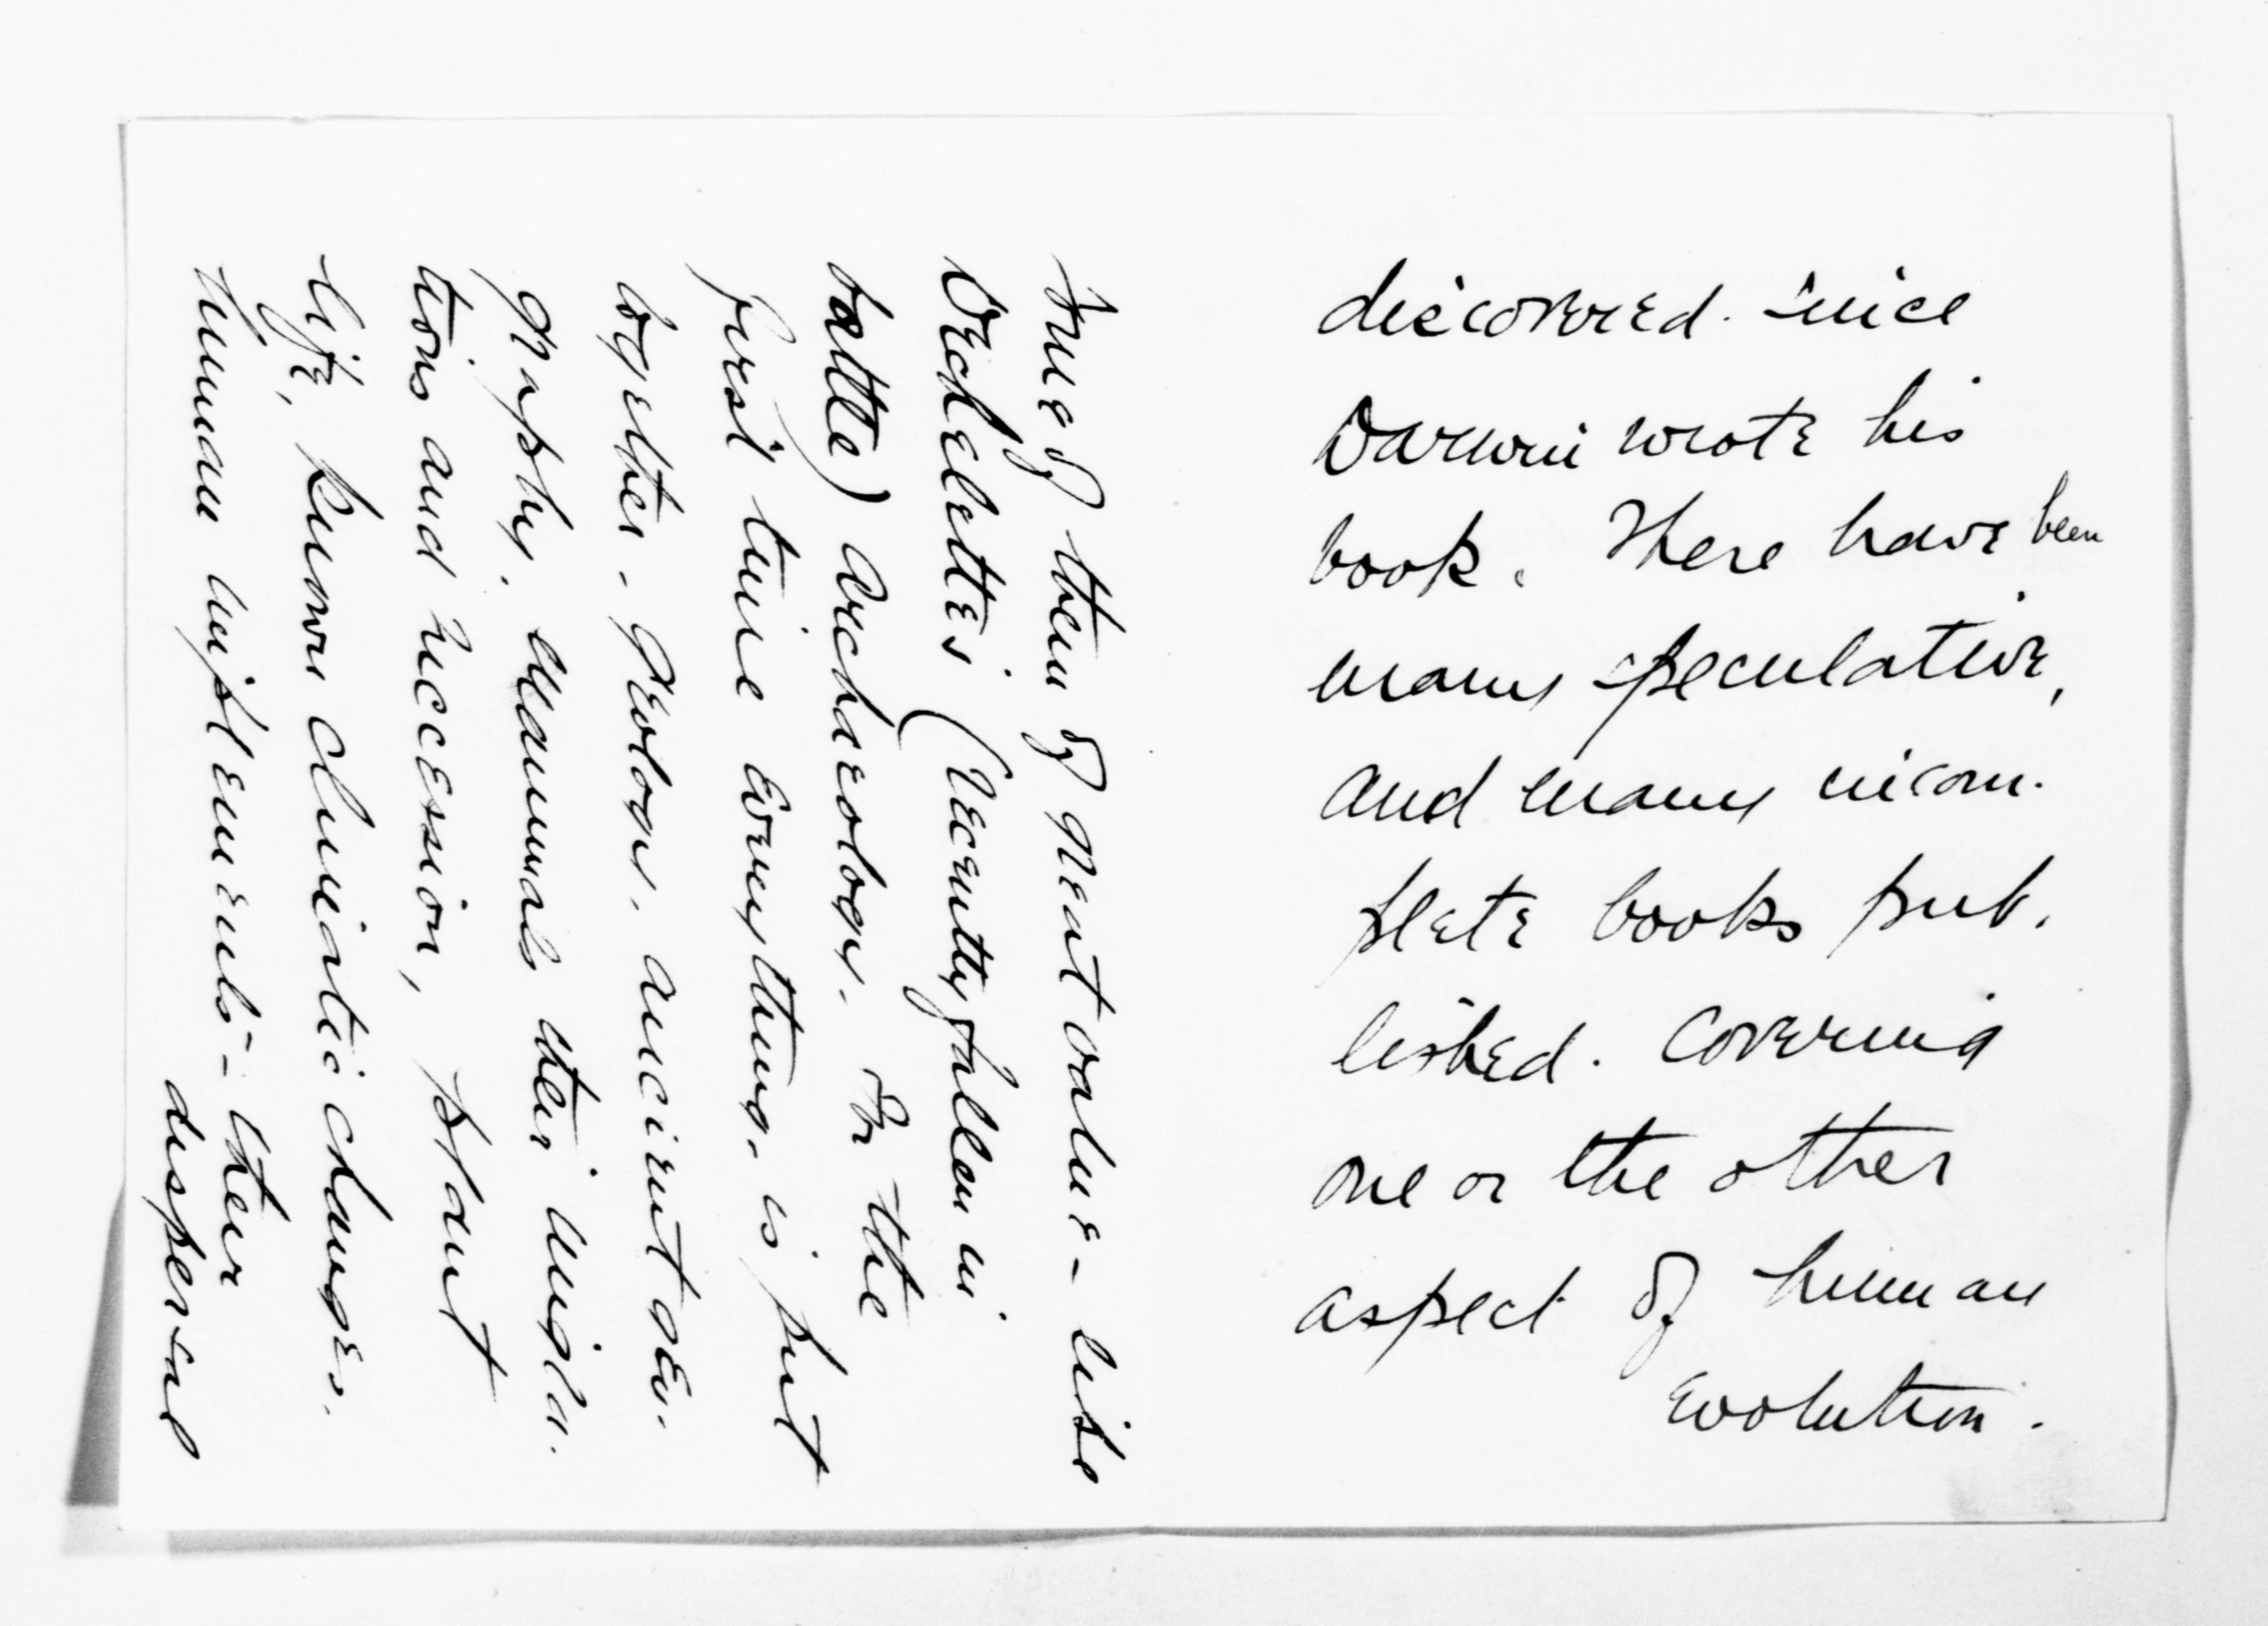 discovered since
Darwin wrote his
book. There have been
many speculative,
and many incom-
plete books pub-
lished. Covering
one or the other
aspect of human
evolution.
Some of them of great value - like
Dechelette's (recently fallen in
battle) Archaeology. For the
first time everything is put
together - geology, ancient geo-
graphy, Mammals their migra-
tions and succession, plant
life, known climatic changes.
human implements - their
dispersal